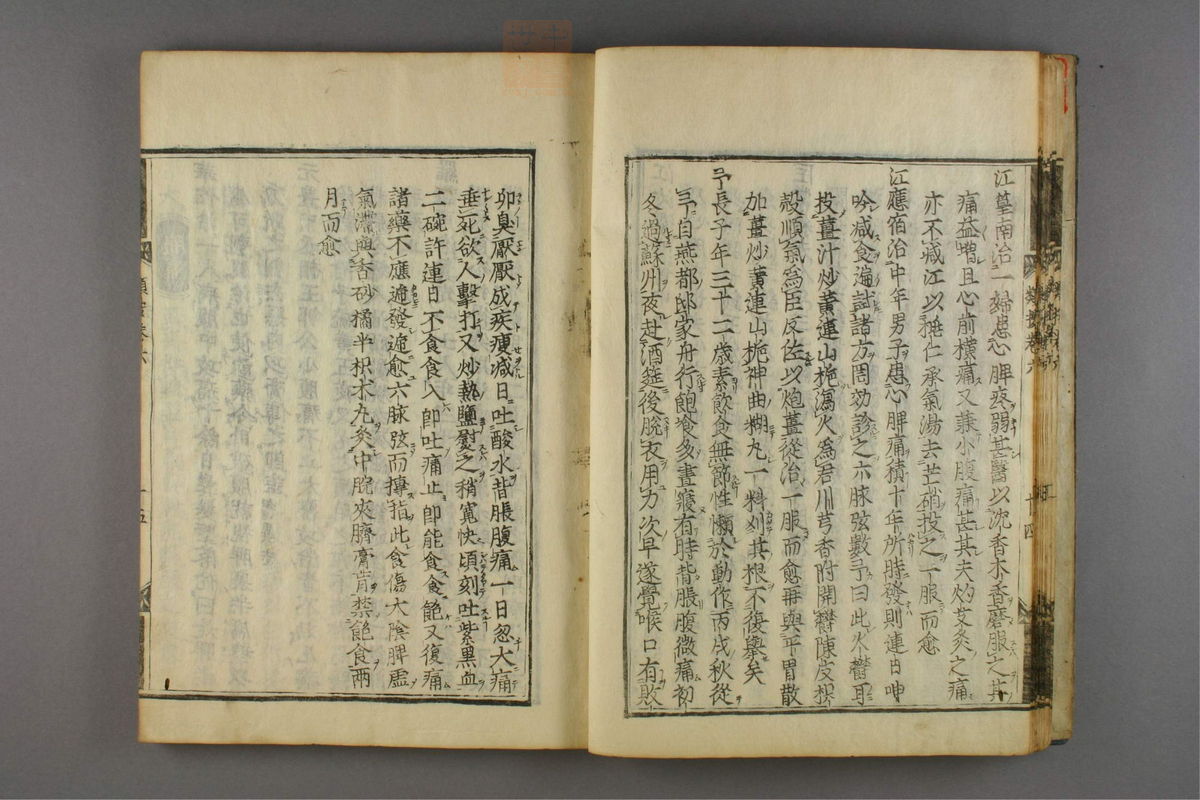 江篁南治一婦患心脾疼弱甚醫以沈香木香磨服之其
痛益增且心前橫痛又兼小腹痛甚其夫灼艾灸之痛
亦不减江以桃仁承氣湯去芒硝投之一服而愈
江應宿治中年男子患心脾痛積十年所時發則連日呻
吟减食遍試諸方罔効診之六脉弦數予曰此火欝耳
投薑汁炒黃連山梔瀉火爲君川芎香附開欝陳皮枳
殼順氣爲臣反佐以炮薑從治一服而愈再與平胃散
加薑炒黃連山梔神曲糊丸一料刈其根不復擧矣
予長子年三十二歲素飲食無節性懶於動作丙戌秋從
予自燕都邸家舟行飽食多晝寢有時背脹腹微痛初
冬過蘇州夜赴酒筵後脫衣用力次早遂覺喉口有敗
卵臭厭厭成疾瘦减日吐酸水背脹腹痛一日忽大痛
垂死欲人擊打又炒熱鹽熨之稍寬快頃刻吐紫黑血
二碗許連日不食食入卽吐痛止卽能食食飽又復痛
諸藥不應遞發遞愈六脉弦而搏指此食傷大陰脾虛
氣滯與香砂橘半枳朮丸灸中脘夾臍膏肓禁飽食兩
月而愈